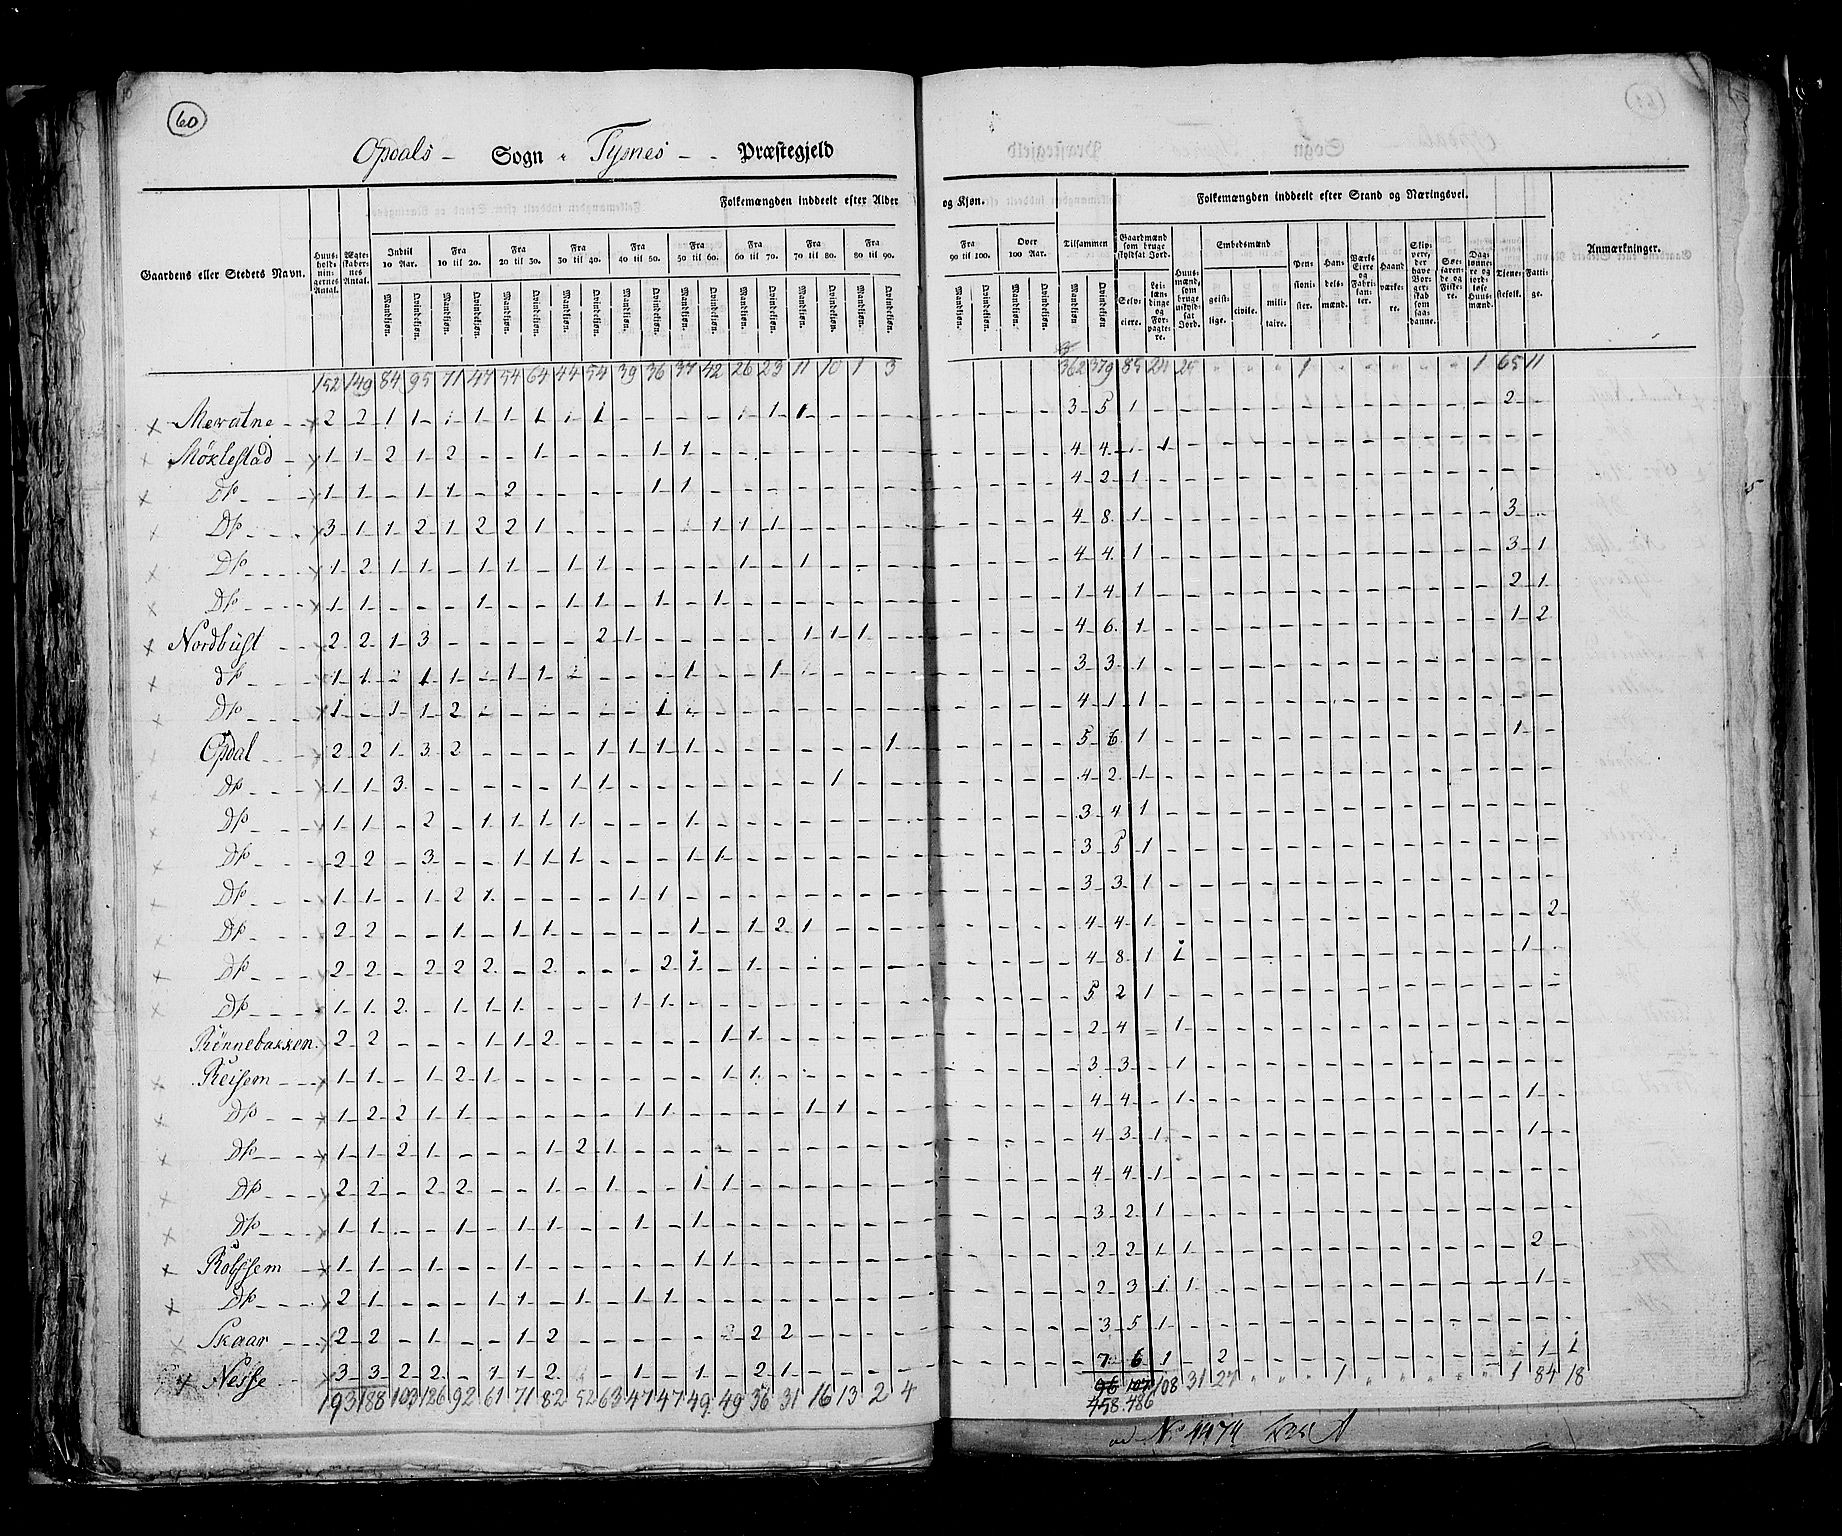 60
Opdals - Sogn i Tysnes - Præstegjeld
Folkemængden inddeelt efter Alder og Kjøn.
Folkemængden inddeelt efter Stand og Næringsvei.
Gaardens eller Stedets Navn.
Anmærkninger.
Indtil 10 Aar. Fra 10 til 20. Fra 20 til 30. Fra 30 til 40. Fra 40 til 50. Fra 50 til 60. Fra 60 til 70. Fra 70 til 80. Fra 80 til 90. Fra 90 til 100. Over 100 Aar. Tilsammen
Mandkjøn. Qvindekjøn.
152 149 84 95 71 47 54 64 44 54 39 36 37 42 26 23 11 10 1 3 362 379 85 24 25 1 1 65 11
Meratne 2 2 1 1 1 1 1 1 1 1 3 5 1 2
Møklestad 1 1 2 1 2 1 1 1 4 4 1 1
Do 1 1 1 1 2 1 1 4 2 1
Do 3 1 1 2 1 2 2 1 1 1 1 4 8 1 3
Do 1 2 1 1 1 1 1 1 1 1 4 4 1 3 1
Do 1 1 1 1 1 1 1 1 4 1 2 1
Nordbust 2 2 1 3 2 1 1 1 1 4 6 1 1 2
do 3 3 1
Do 4 1 1
Opdal 2 2 1 3 2 1 1 1 1 1 5 6 1 1
Do 1 1 3 1 1 1 4 2 1
Do 1 1 2 1 1 1 1 1 3 4 1
Do 2 2 3 1 1 1 1 1 3 5 1
Do 1 1 1 2 1 1 1 3 3 1
Do 2 2 1 1 1 1 1 2 1 4 4 1 2
Do 2 2 2 2 2 2 2 1 1 4 8 1 1 1
Do 1 1 2 1 1 1 1 1 5 2 1
Rennebakken 2 2 1 1 2 1 1 2 4 1
Reisem 1 1 1 2 1 1 1 3 3 1
Do 1 2 2 1 1 1 1 1 1 4 4 1 1
Do 1 1 2 1 1 2 1 4 3 1 1
Do 2 2 2 2 1 1 1 1 4 4 1
Do 1 1 1 1 1 1 1 3 2 1
Rolfssem 1 1 1 1 1 2 2 1 1 2
Do 2 1 1 1 1 1 1 2 3 1 1 1
Skaar 2 2 1 1 2 2 2 3 5 1
Nesse 3 3 2 2 1 1 2 1 1 2 1 7 6 1 2 1 1
193 188 103 126 92 61 71 82 52 63 47 47 49 49 36 31 16 13 2 4 96 107 108 31 27 1 1 84 18
458 486
No 1474